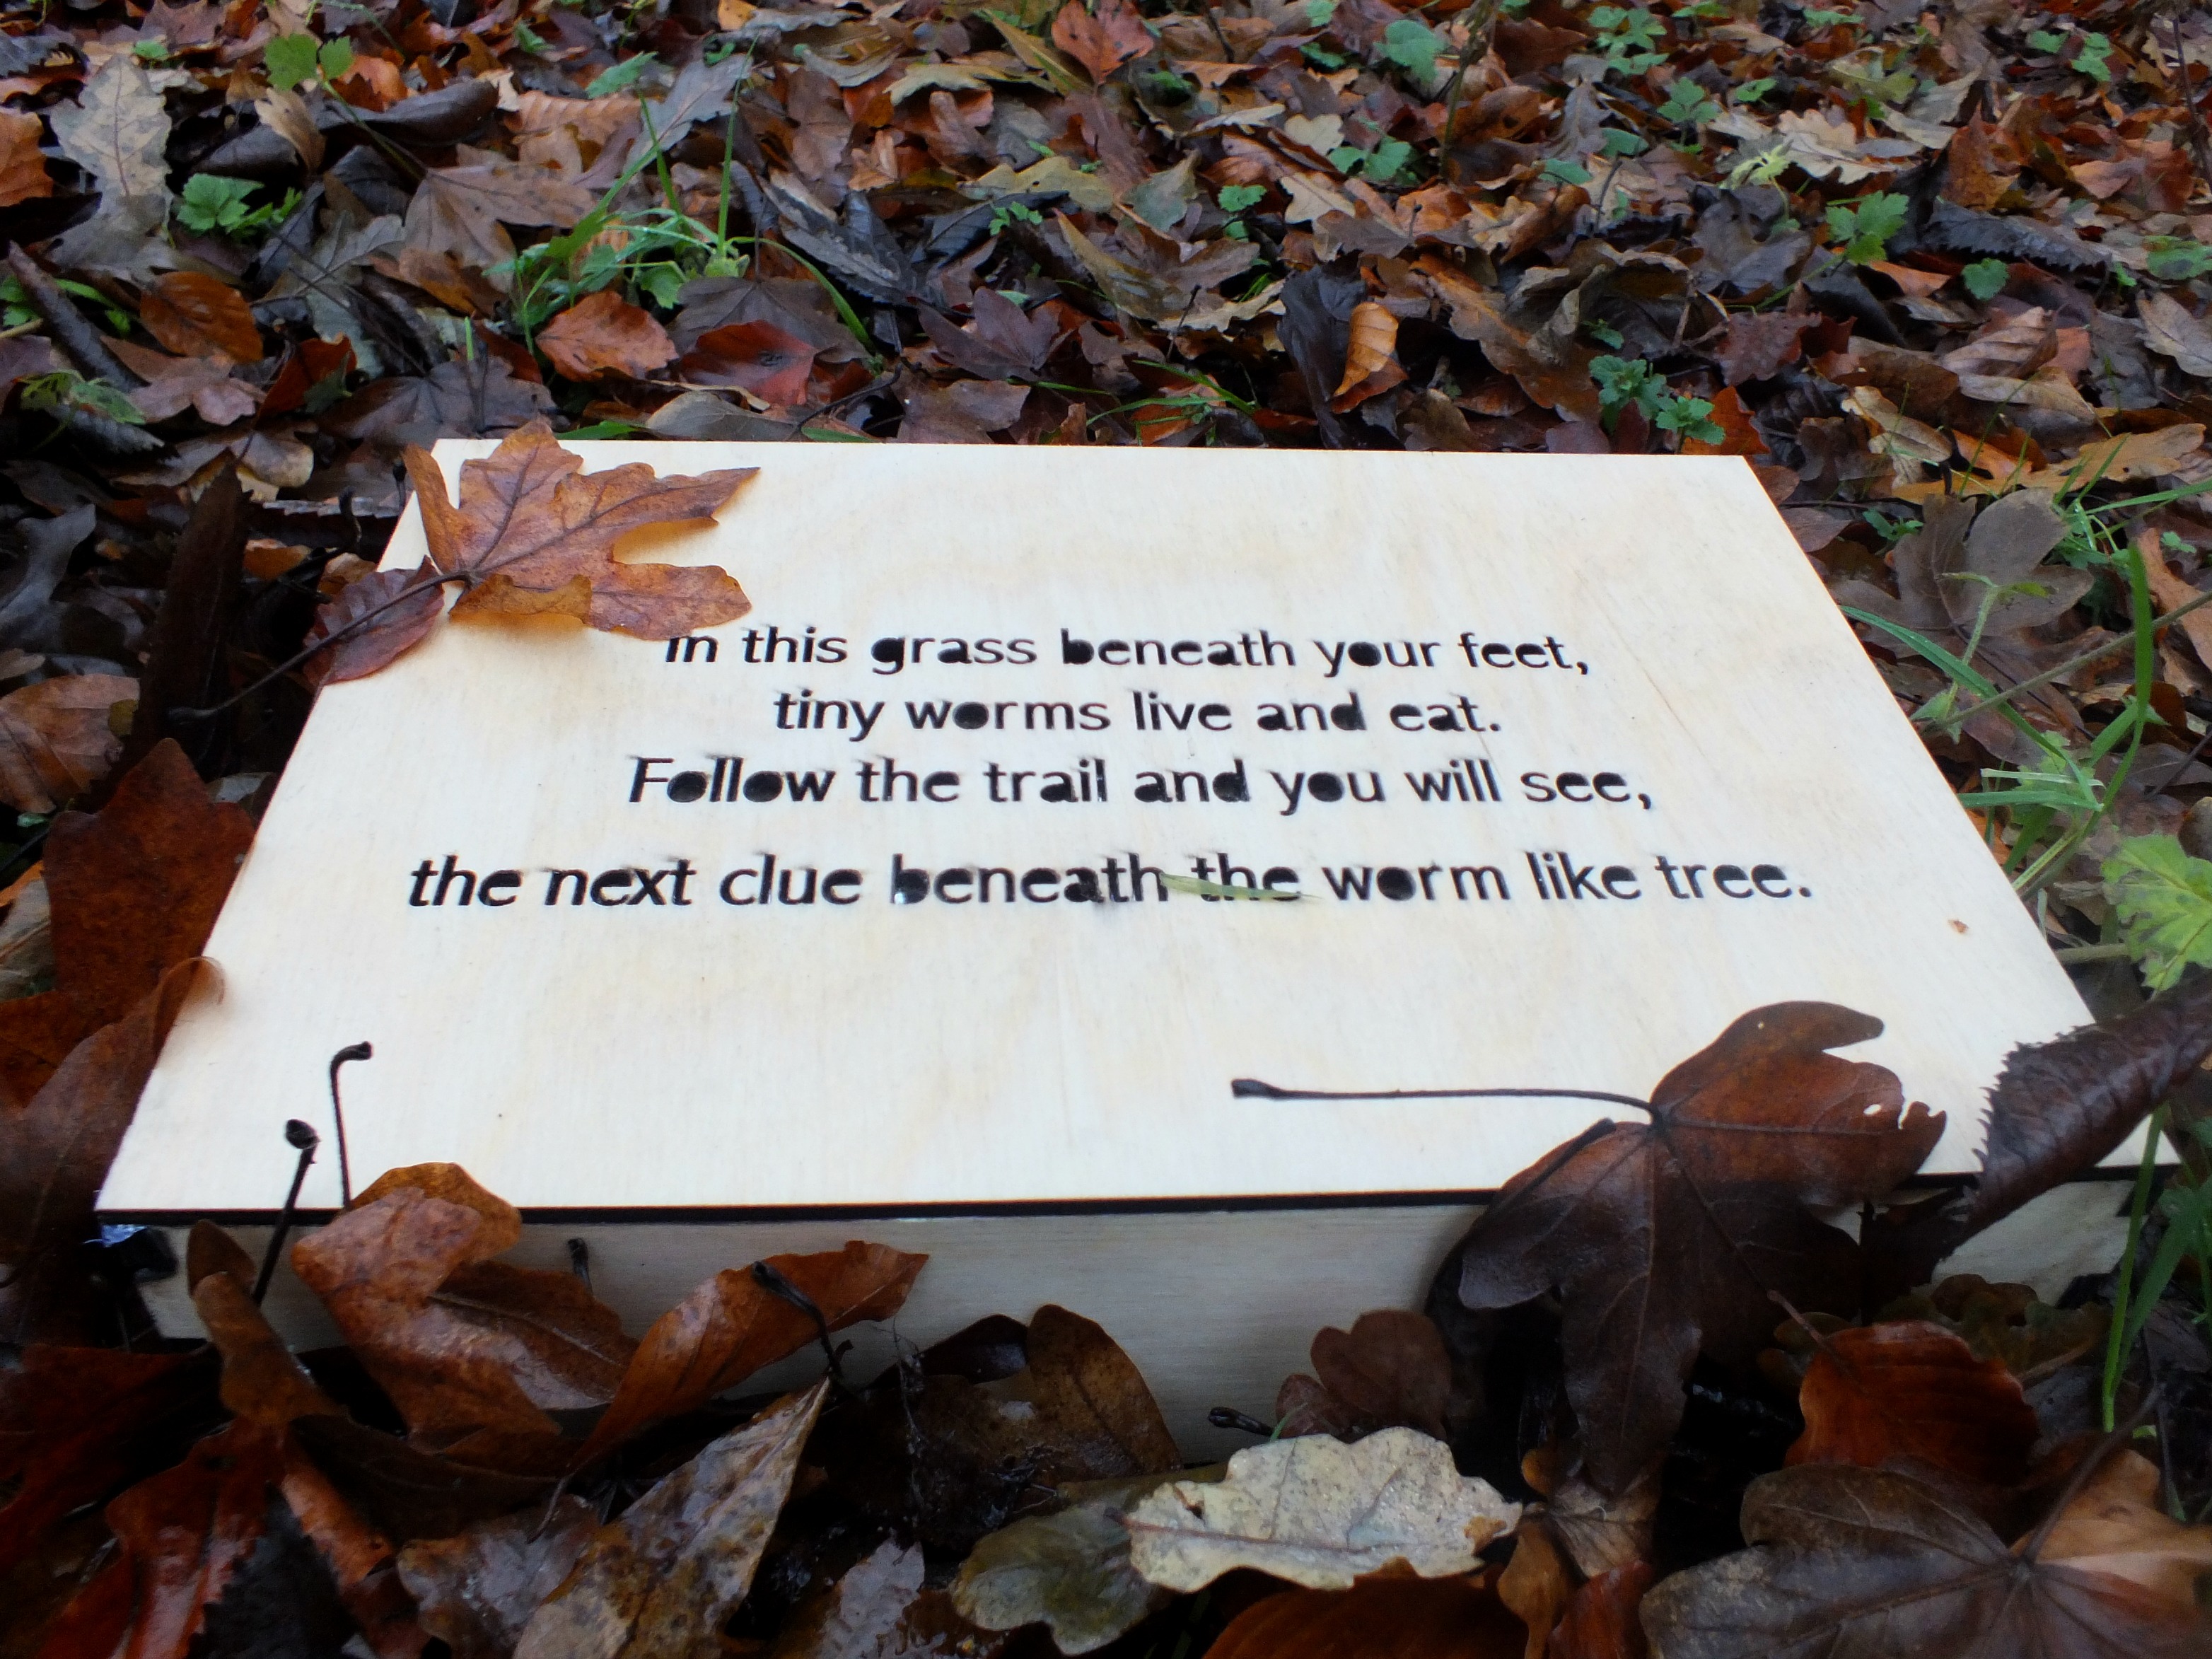 In this grass beneath your feet,
tiny worms live and eat.
Follow the trail and you will see,
the next clue beneath the worm like tree.